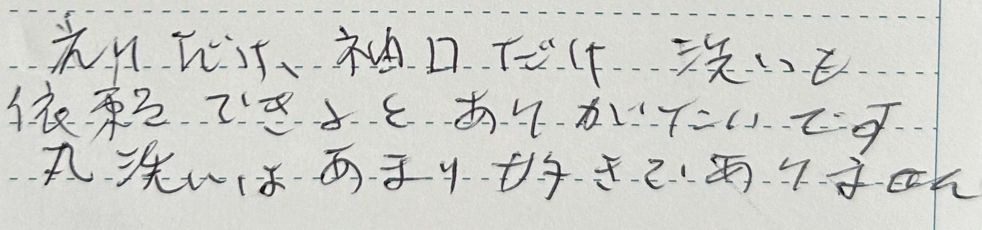 衿だけ、袖口だけ 洗いも
依頼できるとありがたいです
丸洗いはあまり好きでありません